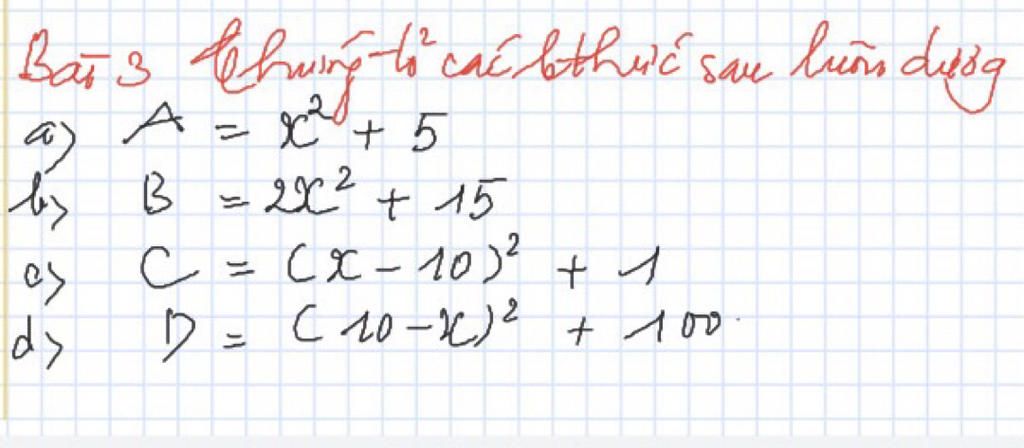 Bài 3 Chứng tỏ các bthức sau luôn dương
a) A = x² + 5
b) B = 2x² + 15
c) C = (x - 10)² + 1
d) D = (10 - x)² + 100